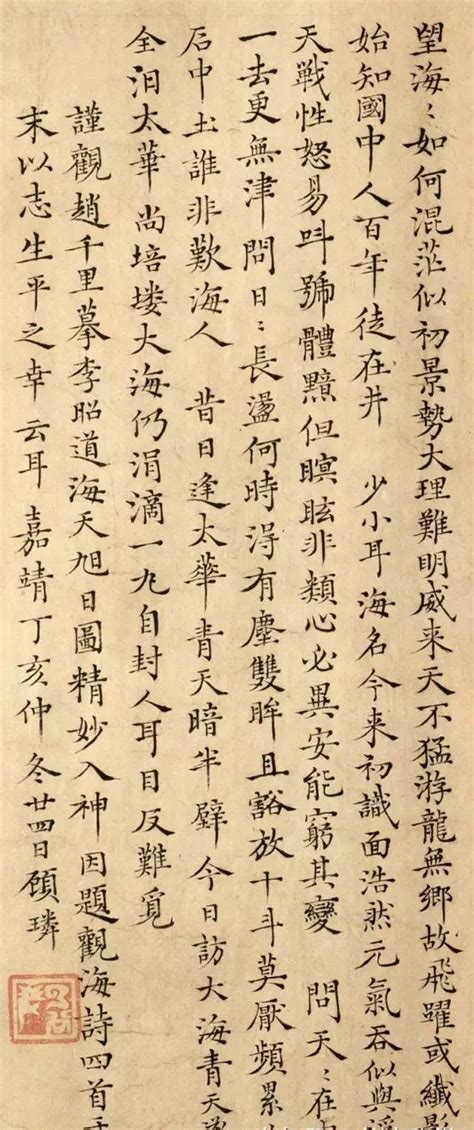 望海〻如何混茫似初景勢大理難明威来天不猛游龍無鄉故飛躍或纖影
始知國中人百年徒在井　少小耳海名今来初識面浩然元氣吞似與
天戰性怒易叫號體黯但瞑眩非類心必異安能窮其變　問天〻在
一去更無津問日〻長盪何時淂有塵雙眸且豁放十斗莫厭頻累
后中土誰非歎海人　昔日逢太華青天暗半壁今日訪大海青天
全汨太華尚培塿大海仍涓滴一丸自封人耳目反難覓
謹觀趙千里摹李昭道海天旭日圖精妙入神因題觀海詩四首
末以志生平之幸云耳嘉靖丁亥仲冬廿四日顧璘